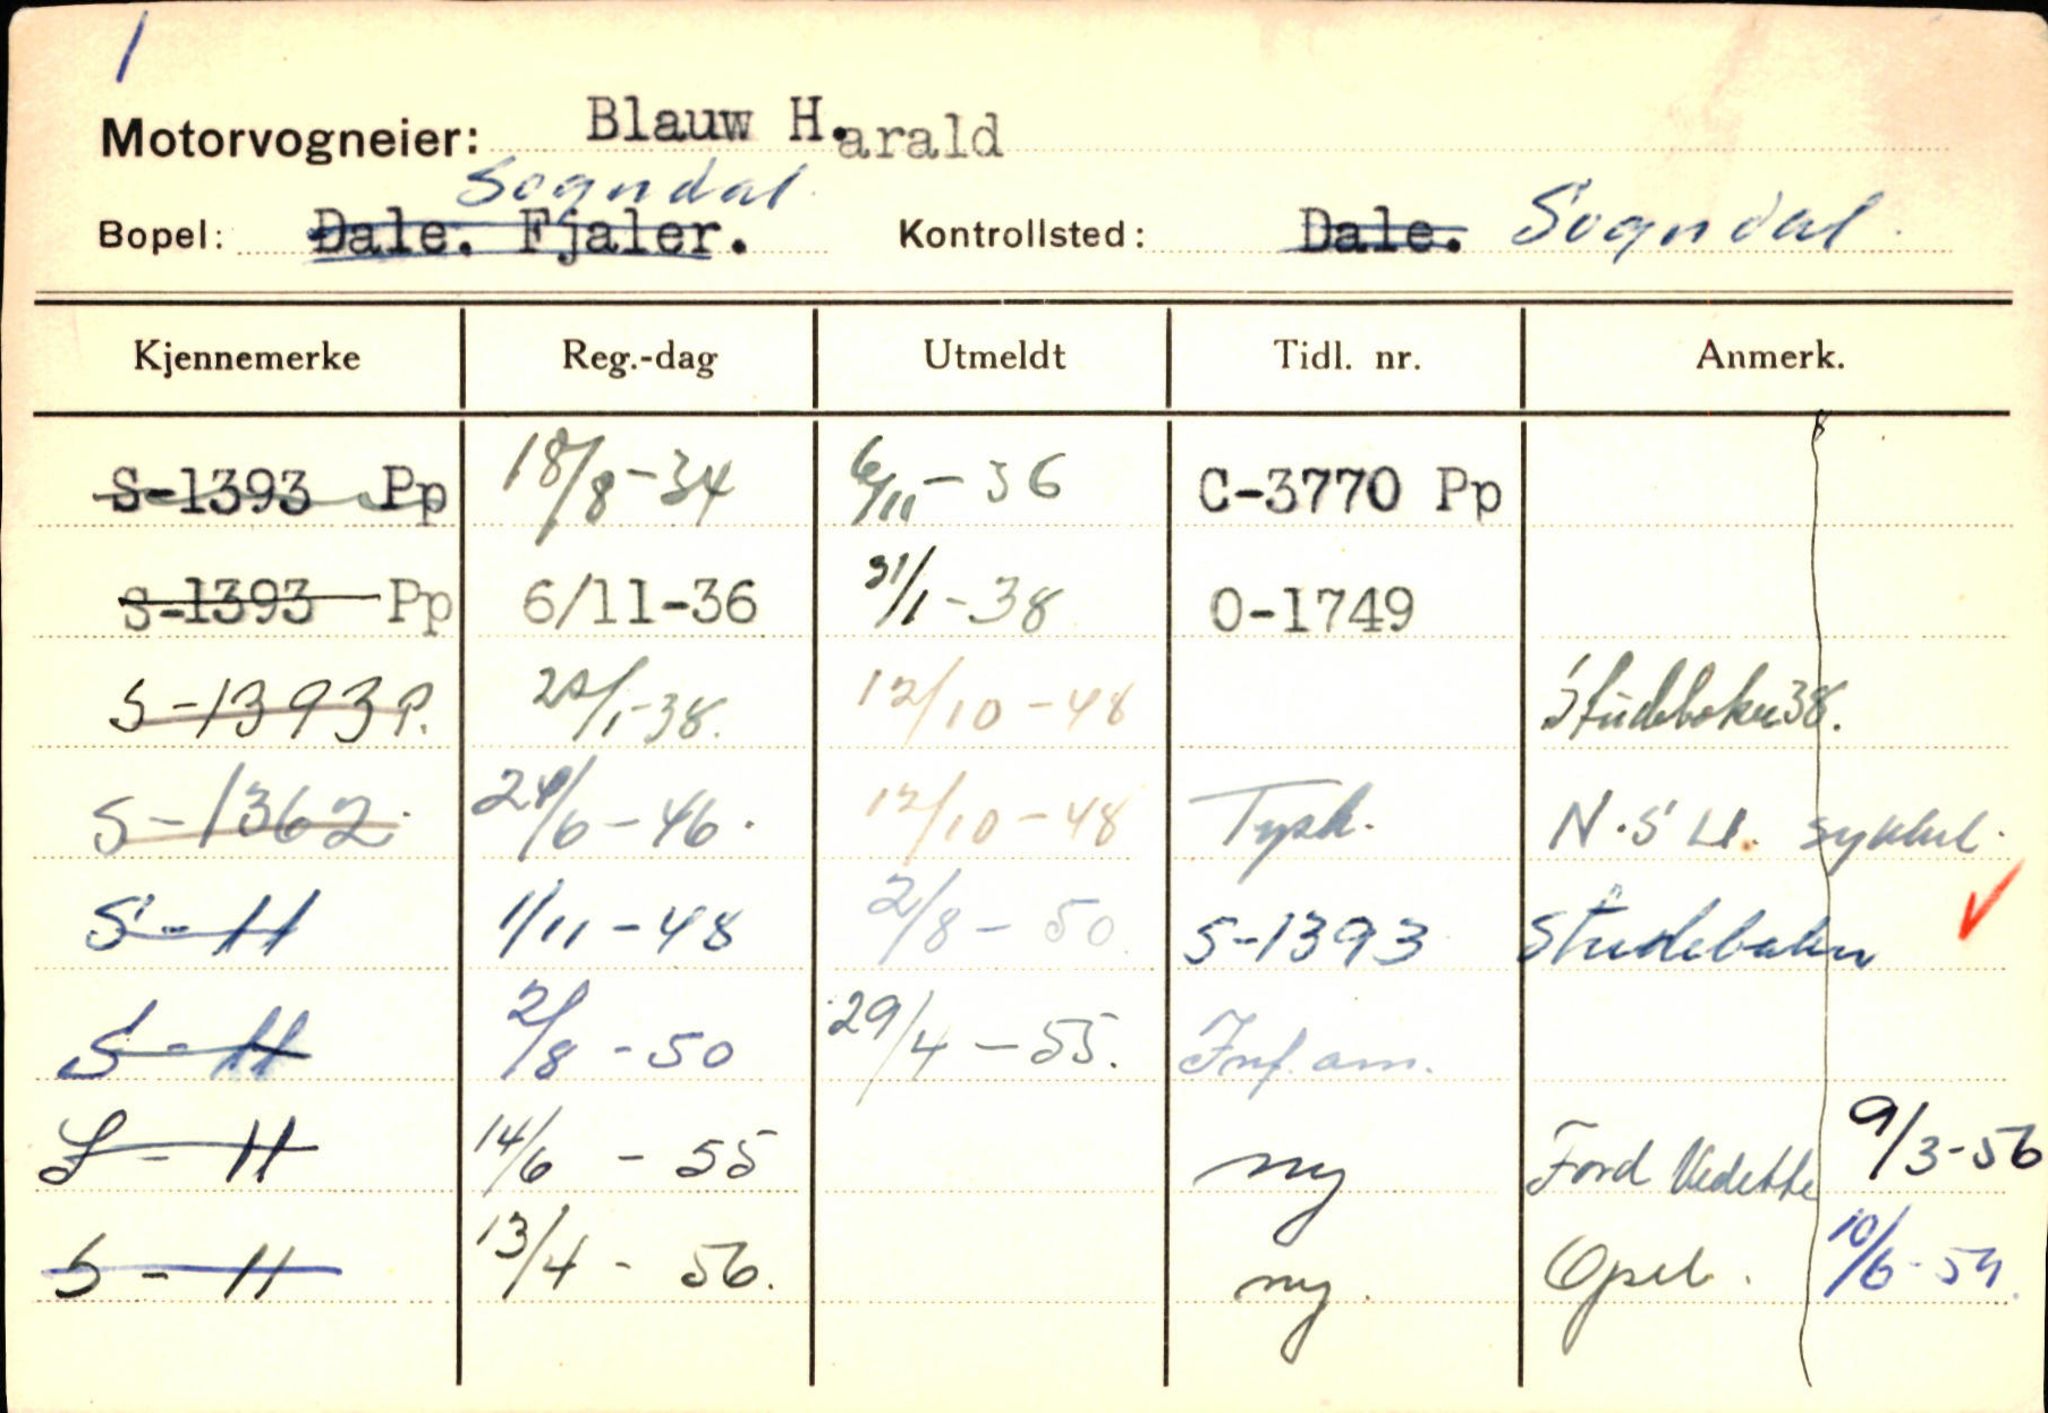 1
Motorvogneier: Blauw H.arald
Sogndal
Bopel: Dale. Fjaler. Kontrollsted: Dale. Sogndal
Kjennemerke Reg.-dag Utmeldt Tidl. nr. Anmerk.
S-1393 Pp 18/8-34 6/11-36 C-3770 Pp
S-1393 Pp 6/11-36 31/1-38 O-1749
S-1393 P. /1-38. 12/10-48 Studebaker 38.
S-1362 24/6-46. 12/10-48 Tysk. N.S.U. sykkel.
S-11 1/11-48 2/8-50 S-1393 Studebaker
S-11 2/8-50 29/4-55. Inf. am.
S-11 14/6-55 ny Ford Vedette 9/3-56
S-11 13/4-56. ny. Opel. 10/6-